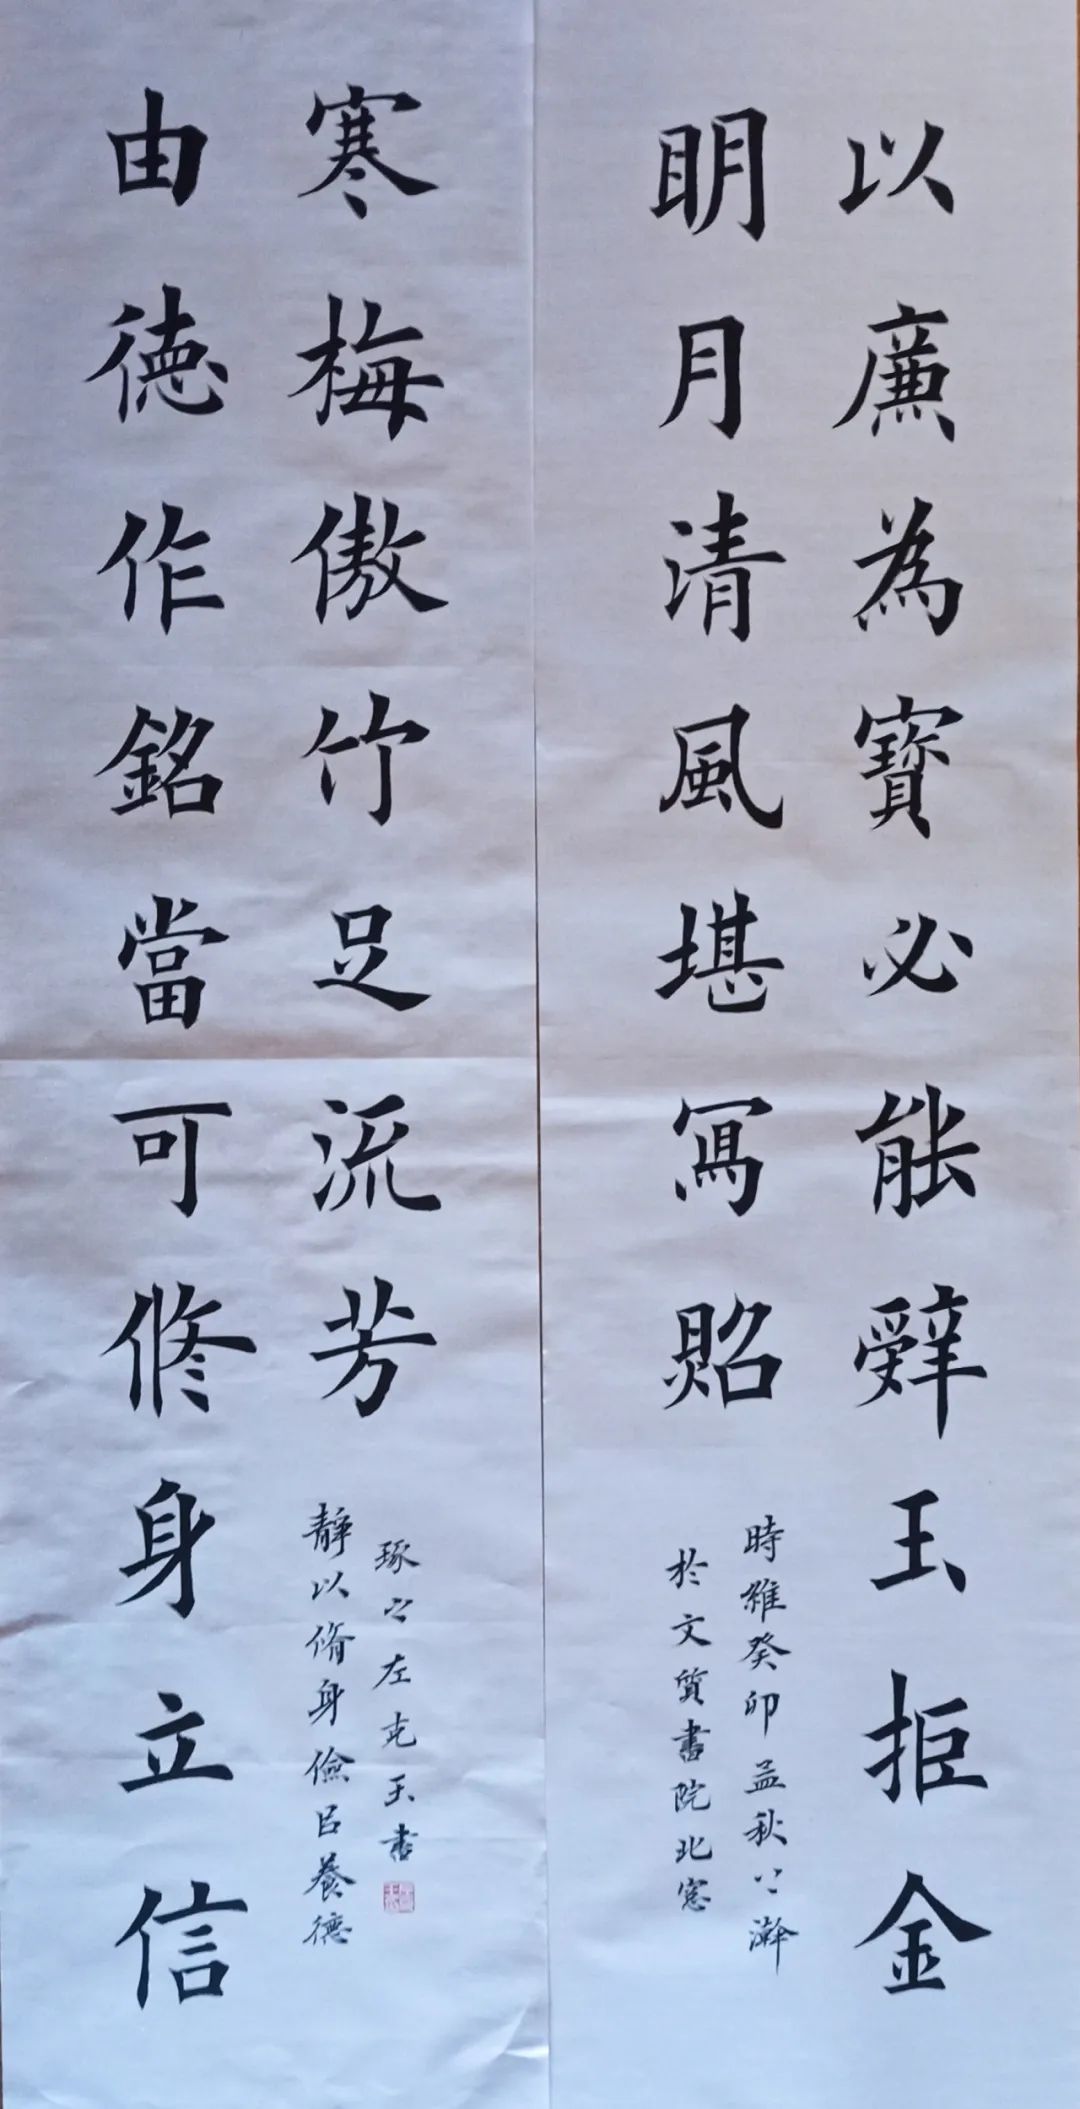 以廉為寶必能辭玉拒金
明月清風堪寫照
時維癸卯孟秋之澣
於文質書院北窓
由德作銘當可修身立信
寒梅傲竹足流芳
靜以脩身儉㠯養德
琢之左克玉書